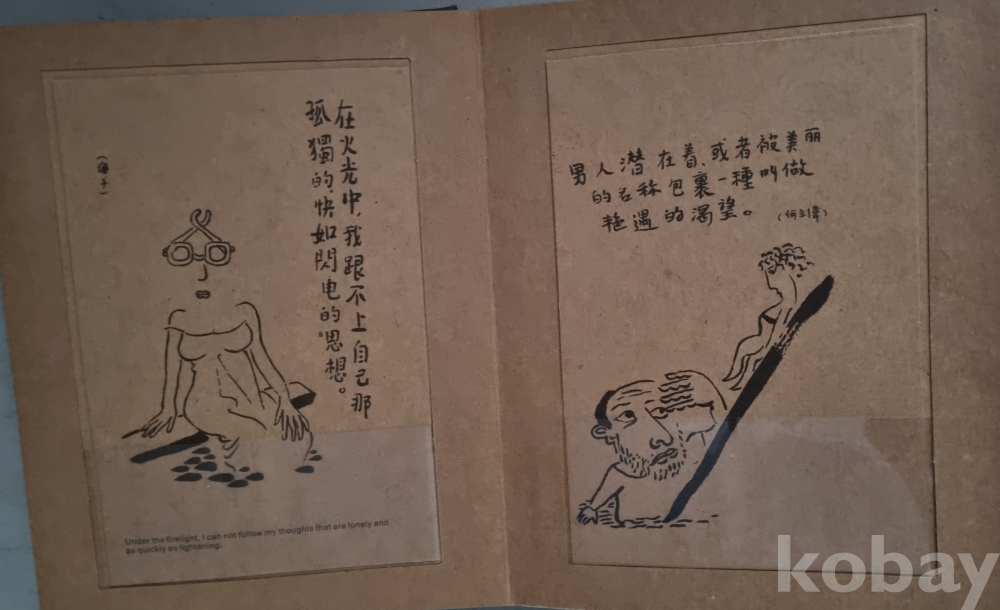 在火光中，我跟不上自己那
孤獨的，快如閃电的思想。
（海子）
Under the firelight, I can not follow my thoughts that are lonely and
as quickly as lightening.
男人潜在着、或者被美丽
的名称包裹一種叫做
艳遇的渴望。
（何立偉）
kobay